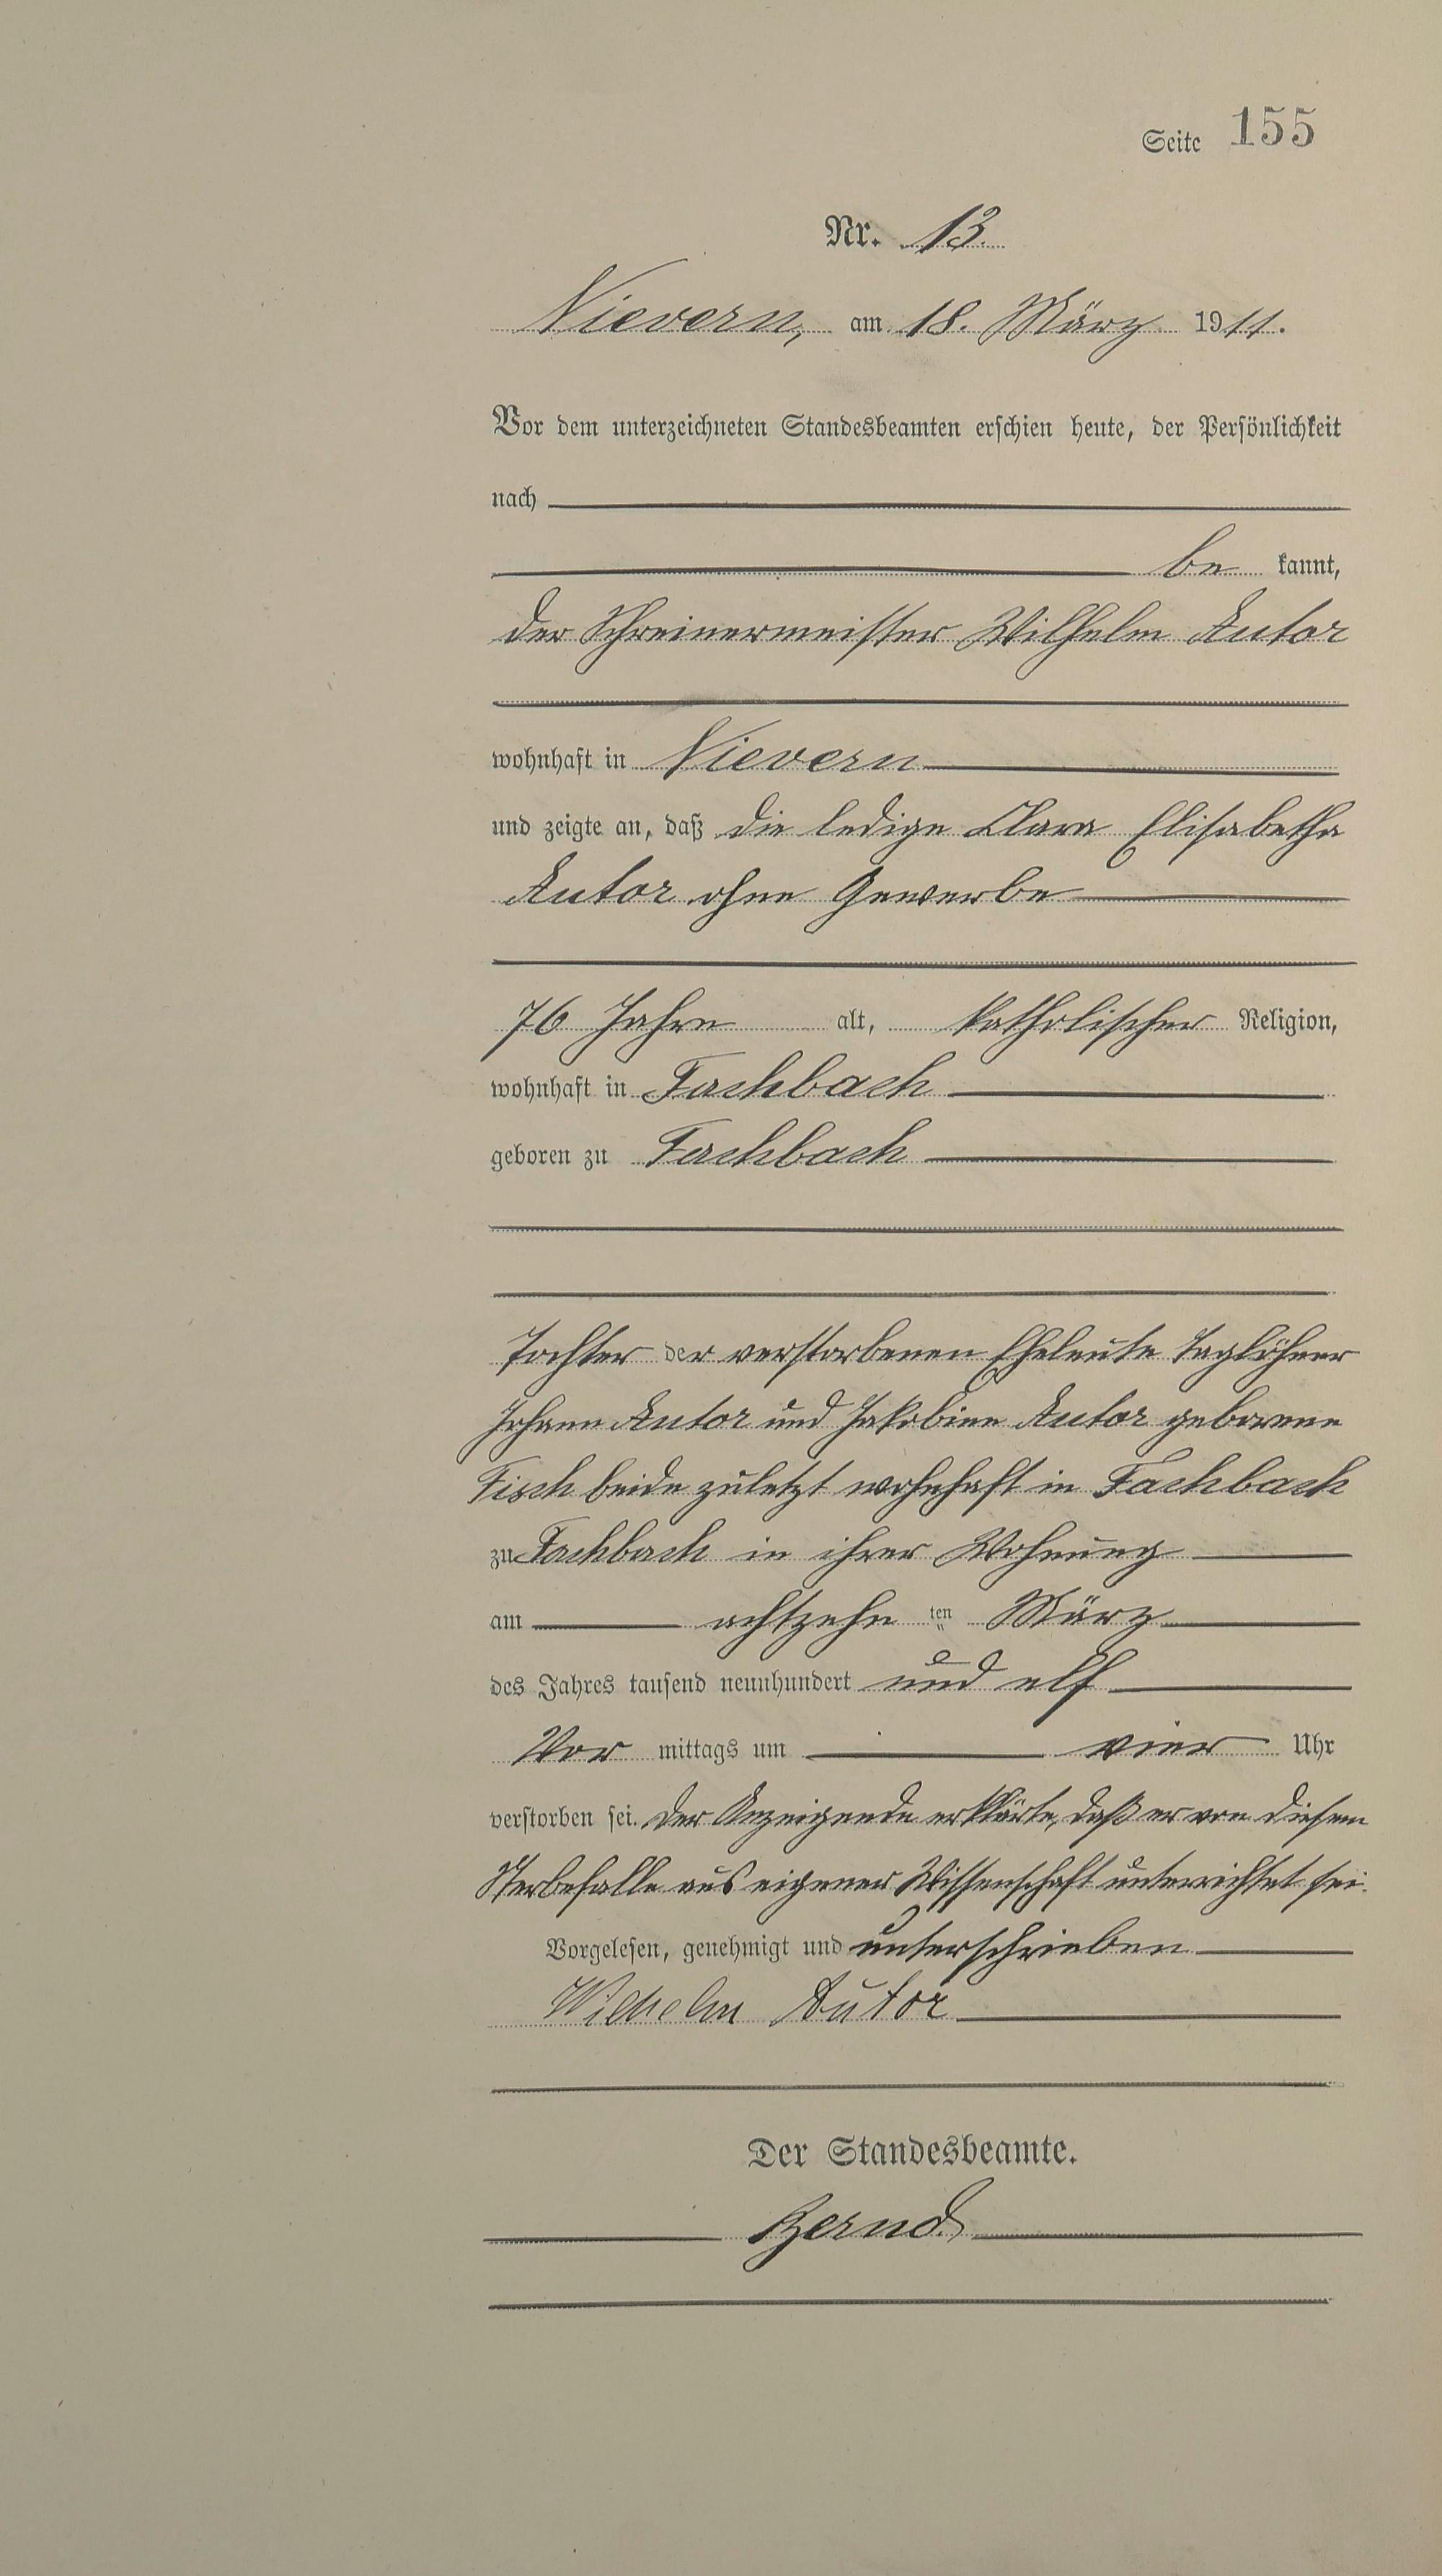 Seite 155
Nr. 13.
Nievern, am 18. März 1911.
Vor dem unterzeichneten Standesbeamten erschien heute, der Persönlichkeit
nach
be kannt,
der Schreinermeister Wilhelm Autor
wohnhaft in Nievern
und zeigte an, daß die ledige Clara Elisabetha
Autor ohne Gewerbe
76 Jahre alt, katholischer Religion,
wohnhaft in Fachbach
geboren zu Fachbach
Tochter der verstorbenen Eheleute Taglöhner
Johann Autor und Jakobine Autor geborene
Fisch beide zuletzt wohnhaft in Fachbach
zu Fachbach in ihrer Wohnung
am achtzehn ten März
des Jahres tausend neunhundert und elf
Vor mittags um vier Uhr
verstorben sei. Der Anzeigende erklärte, daß er von diesem
Sterbefalle aus eigener Wissenschaft unterrichtet sei.
Vorgelesen, genehmigt und unterschrieben
Wilhelm Autor
Der Standesbeamte.